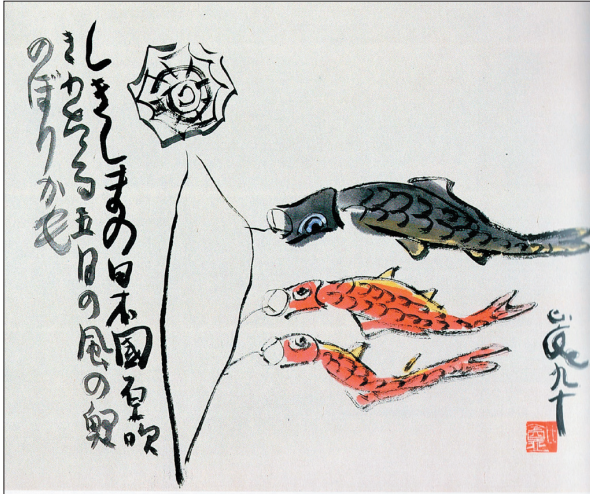 しきしまの日本國原吹
きわたる五日の風の鯉
のぼりかも
九十